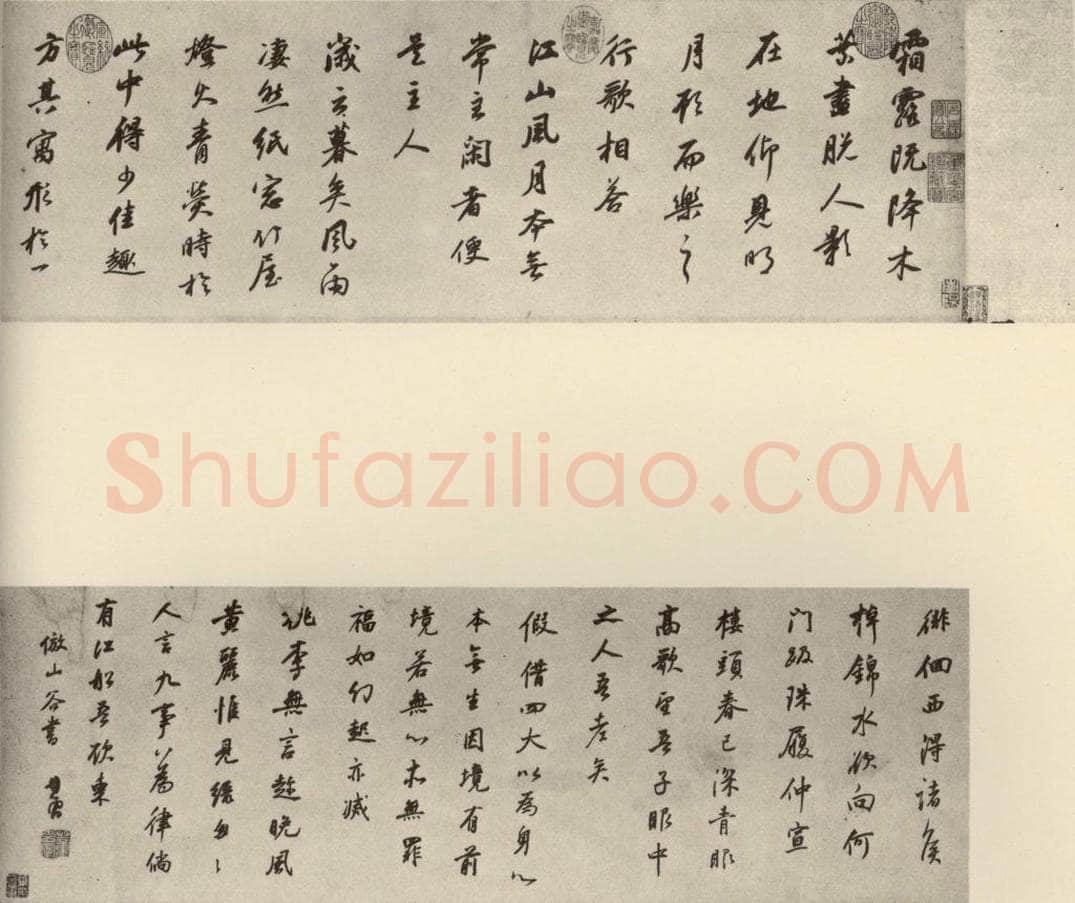 霜露既降木
葉盡脫人影
在地仰見明
月顧而樂之
行歌相答
江山風月本無
常主閑者便
是主人
歲云暮矣風雨
淒然紙窓竹屋
燈火青熒時於
此中得少佳趣
方其寓形於一
Shufaziliao.COM
徘徊西得諸侯
棹錦水欲向何
門趿珠履仲宣
樓頭春已深青眼
高歌望吾子眼中
之人吾老矣
假借四大以為身心
本無生因境有前
境若無心亦無罪
福如幻起亦滅
桃李無言趁晚風
黃鸝惟見綠匆〻
人言九事八為律倘
有江船吾欲東
倣山谷書 其昌